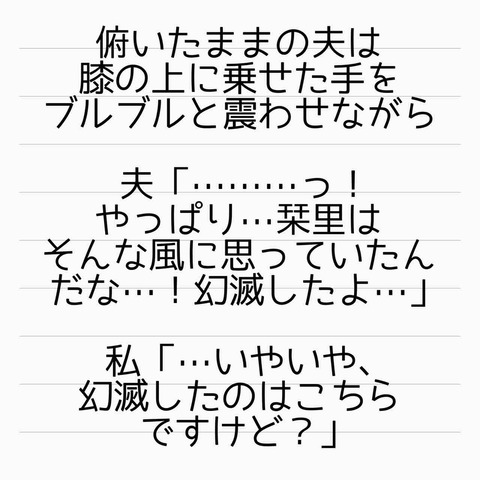 俯いたままの夫は
膝の上に乗せた手を
ブルブルと震わせながら
夫「………っ！
やっぱり…栞里は
そんな風に思っていたん
だな…！幻滅したよ…」
私「…いやいや、
幻滅したのはこちら
ですけど？」